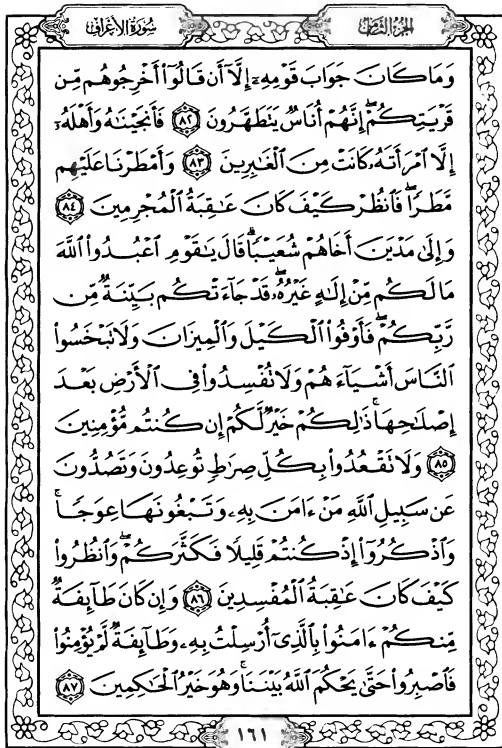 سُورَةُ الأَعۡرَافِ
الجُزءُ الثَّامِنُ
وَمَا كَانَ جَوَابَ قَوۡمِهِۦٓ إِلَّآ أَن قَالُوٓاْ أَخۡرِجُوهُم مِّن
قَرۡيَتِكُمۡۖ إِنَّهُمۡ أُنَاسٞ يَتَطَهَّرُونَ ٨٢ فَأَنجَيۡنَٰهُ وَأَهۡلَهُۥٓ
إِلَّا ٱمۡرَأَتَهُۥ كَانَتۡ مِنَ ٱلۡغَٰبِرِينَ ٨٣ وَأَمۡطَرۡنَا عَلَيۡهِم
مَّطَرٗاۖ فَٱنظُرۡ كَيۡفَ كَانَ عَٰقِبَةُ ٱلۡمُجۡرِمِينَ ٨٤
وَإِلَىٰ مَدۡيَنَ أَخَاهُمۡ شُعَيۡبٗاۚ قَالَ يَٰقَوۡمِ ٱعۡبُدُواْ ٱللَّهَ
مَا لَكُم مِّنۡ إِلَٰهٍ غَيۡرُهُۥۖ قَدۡ جَآءَتۡكُم بَيِّنَةٞ مِّن
رَّبِّكُمۡۖ فَأَوۡفُواْ ٱلۡكَيۡلَ وَٱلۡمِيزَانَ وَلَا تَبۡخَسُواْ
ٱلنَّاسَ أَشۡيَآءَهُمۡ وَلَا تُفۡسِدُواْ فِي ٱلۡأَرۡضِ بَعۡدَ
إِصۡلَٰحِهَاۚ ذَٰلِكُمۡ خَيۡرٞ لَّكُمۡ إِن كُنتُم مُّؤۡمِنِينَ
٨٥ وَلَا تَقۡعُدُواْ بِكُلِّ صِرَٰطٖ تُوعِدُونَ وَتَصُدُّونَ
عَن سَبِيلِ ٱللَّهِ مَنۡ ءَامَنَ بِهِۦ وَتَبۡغُونَهَا عِوَجٗاۚ
وَٱذۡكُرُوٓاْ إِذۡ كُنتُمۡ قَلِيلٗا فَكَثَّرَكُمۡۖ وَٱنظُرُواْ
كَيۡفَ كَانَ عَٰقِبَةُ ٱلۡمُفۡسِدِينَ ٨٦ وَإِن كَانَ طَآئِفَةٞ
مِّنكُمۡ ءَامَنُواْ بِٱلَّذِيٓ أُرۡسِلۡتُ بِهِۦ وَطَآئِفَةٞ لَّمۡ يُؤۡمِنُواْ
فَٱصۡبِرُواْ حَتَّىٰ يَحۡكُمَ ٱللَّهُ بَيۡنَنَاۚ وَهُوَ خَيۡرُ ٱلۡحَٰكِمِينَ ٨٧
١٦١